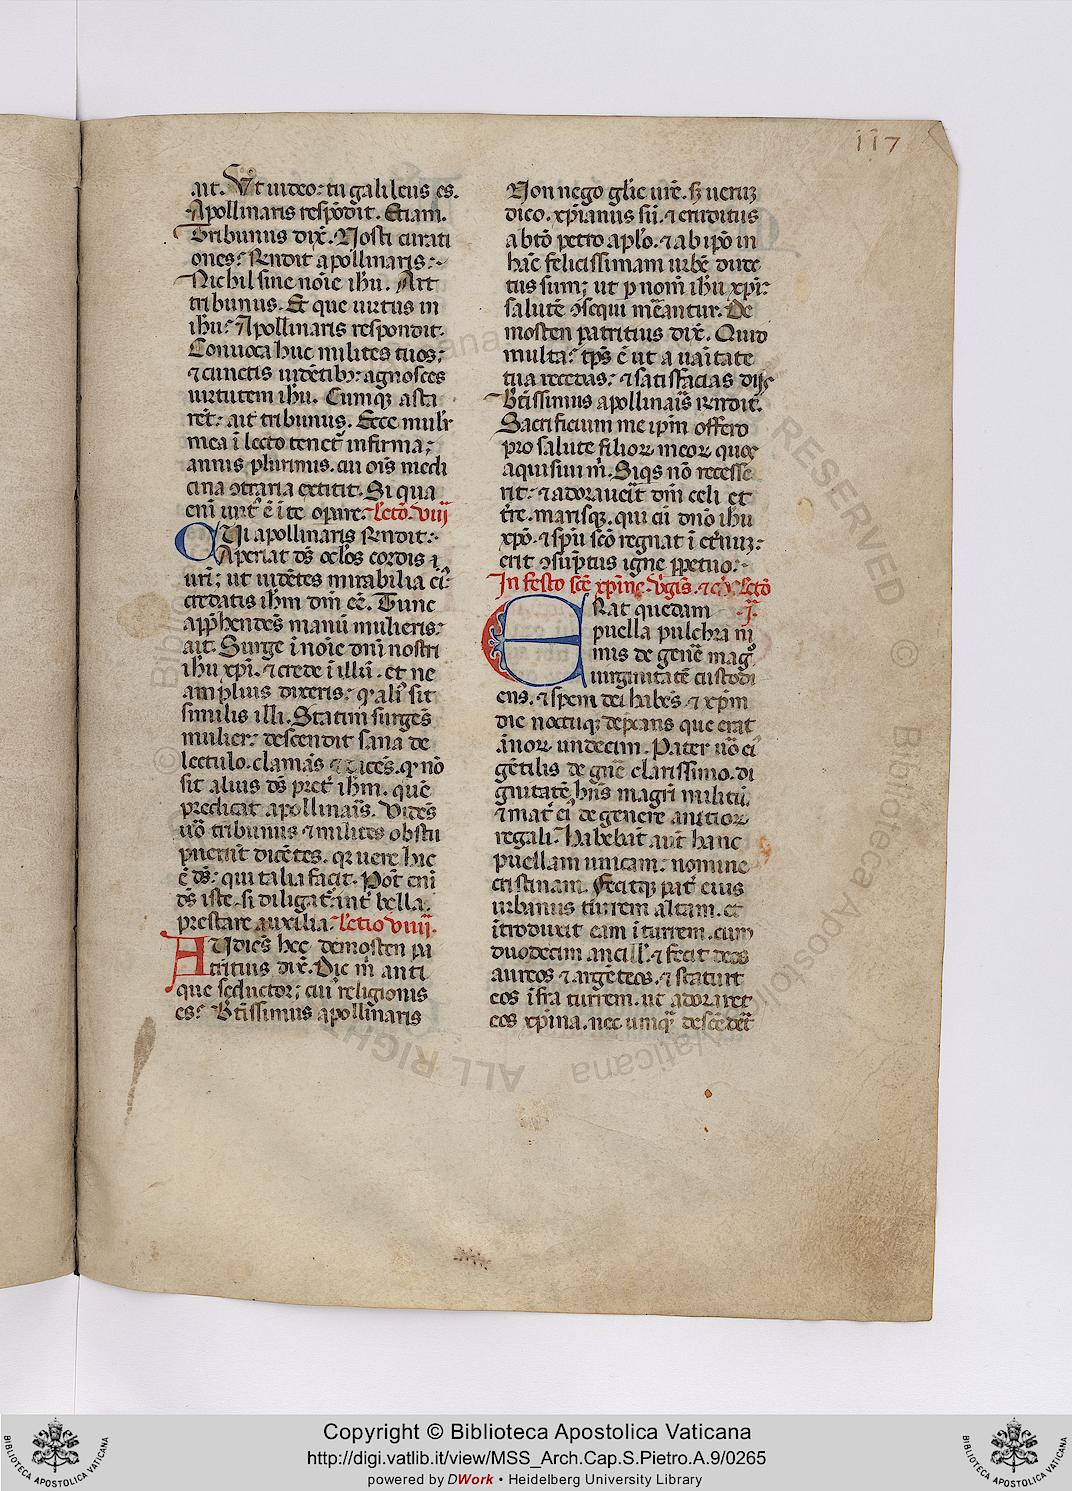 117
ait. Vt uideo: tu galileus es.
Apollinaris respōdit. Etiam.
Tribunus dix̄. Nosti curati
ones? Rn̄dit apollinaris:
Nichil sine noīe ih̄u. Ait
tribunus. Et que uirtus in
ih̄u? Apollinaris respondit.
Conuoca huc milites tuos:
⁊ cunctis uidētibꝫ: agnosces
uirtutem ih̄u. Cumqꝫ asta
ret: ait tribunus. Ecce mulr̄
mea ī lecto tenet̄ infirma:
annis plurimis. cui oīs medi
cina ↄtraria extitit. Si qua
enī uirt᷒ ē ī te opare. Lectō. viii
CVi apollinaris Rn̄dit:
Aperiat dš oc̄los cordis
uri: ut uidētes mirabilia ei᷒:
credatis ih̄m dn̄m eē. Tunc
app̄hendēs manū mulieris:
ait. Surge ī noīe dn̄i nostri
ih̄u xp̄i. ⁊ crede ī illū. et ne
amplius dixeris: ꝙ ali᷒ sit
similis illi. Statim surgēs
mulier: descendit sana de
lectulo. clamās ⁊ dicēs. ꝙ nō
sit alius dš preť ih̄m. quē
predicat apollinaīs. Vidēs
uō tribunus ⁊ milites obstu
puerūt dicētes. qr uere hic
ē dš: qui talia facit. Pōt enī
dš iste. si diligat̄: inť bella.
prestare auxilia. Lectio viiii.
AVdiēs hec demosten pa
tritius dix̄. Dic m̄ anti
que seductor: cui᷒ religionis
es? Bt̄issimus apollīnaris
Non nego gl̄ie ur̄e. sꝫ ueruꝫ
dico. xp̄ianus sū. ⁊ eruditus
a btō petro apl̄o. ⁊ ab ip̄o in
hāc felicissimam urbē direc
tus sum: ut p nom̄ ih̄u xp̄i:
salutē ↄsequi meantur. De
mosten patritius dix̄. Quid
multa? tp̄s ē ut a uaītate
tua recedas: ⁊ satisfacias dijs
Bt̄issimus apollinaīs Rn̄dit.
Sacrificium me ip̄m offero
pro salute filioꝝ meoꝝ quos
aquisiui m̄. Siqs nō recesse
rit: ⁊ adorauerit dn̄m celi et
tr̄e. marisqꝫ. qui cū dnō ih̄u
xp̄o. ⁊ sp̄u scō regnat ī et̄nuꝫ:
erit ↄsūptus igne ppetuo.
In festo scē xp̄ine. v̄gīs. ⁊ m̄r̄. Lectō
i.
ERat quedam
puella pulchra ni
mis de genē magō
uirginitatē custodi
ens. ⁊ spem dei habēs. ⁊ xp̄m
die noctuqꝫ depcans que erat
ānoꝝ undecim. Pater uō ei᷒
gētilis de gn̄e clarissimo. di
gnitatē hn̄s magrī militū.
⁊ mať ei᷒ de genere anitioꝝ
regali. Habebāt aūt hanc
puellam unicam: nomine
cristinam. Fecitqꝫ pať eius
urbanus turrem altam. et
ītroduxit eam ī turrem. cum
duodecim ancill᷒. ⁊ fecit deos
aureos ⁊ argēteos. ⁊ statuit
eos īfra turrem. ut adoraret
eos xp̄ina. nec umqᷓ descēdēt̄
Copyright © Biblioteca Apostolica Vaticana
http://digi.vatlib.it/view/MSS_Arch.Cap.S.Pietro.A.9/0265
powered by DWork • Heidelberg University Library